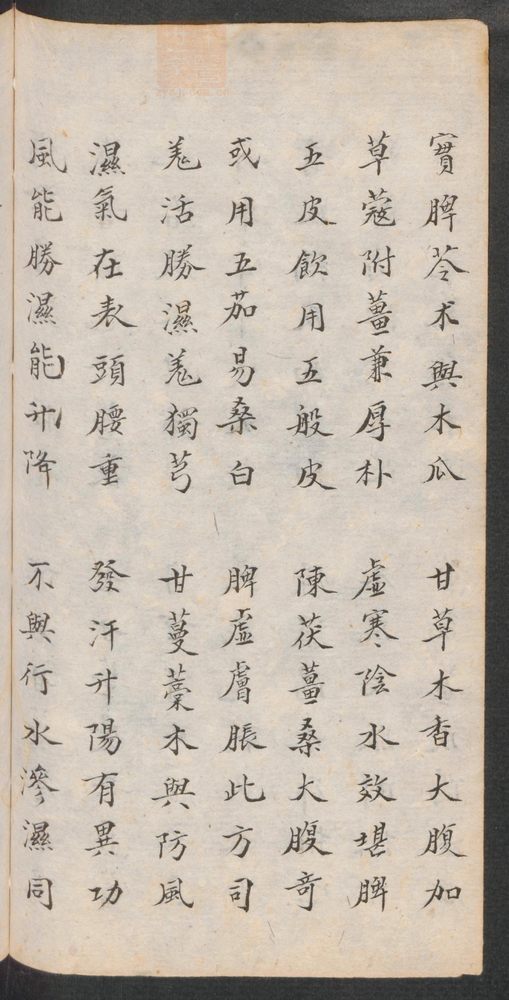 實脾苓术與木瓜　甘草木香大腹加
草蔻附薑兼厚朴　虛寒陰水效堪脾
五皮飲用五般皮　陳茯薑桑大腹奇
或用五茄易桑白　脾虛膚脹此方司
羗活勝濕羗獨芎　甘蔓藁木與防風
濕氣在表頭腰重　發汗升陽有異功
風能勝濕能升降　不與行水滲濕同